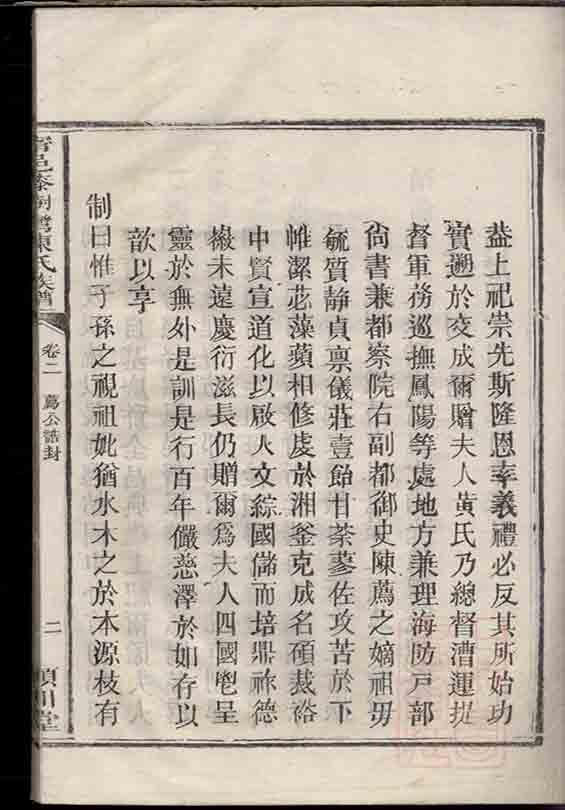 益上祀崇先斯隆恩孝義禮必反其所始功
實遡於交成爾贈夫人黃氏乃總督漕運提
督軍務巡撫鳳陽等處地方兼理海防戸部
尙書兼都察院右副都御史陳薦之嫡祖毋
毓質静貞禀儀莊壹飴甘荼蓼佐攻苦於下
帷潔苾藻蘋相修虔於湘釜克成名碩裁裕
中賢宣道化以啟人文綜國儲而培鼎祚德
徽未遠慶衍滋長仍贈爾爲夫人四國鬯呈
靈於無外是訓是行百年儼慈澤於如存以
歆以享
制曰惟子孫之視祖妣猶水木之於本源枝有
邑泰 陳氏族譜
卷二 薦公誥封
二
潁川堂